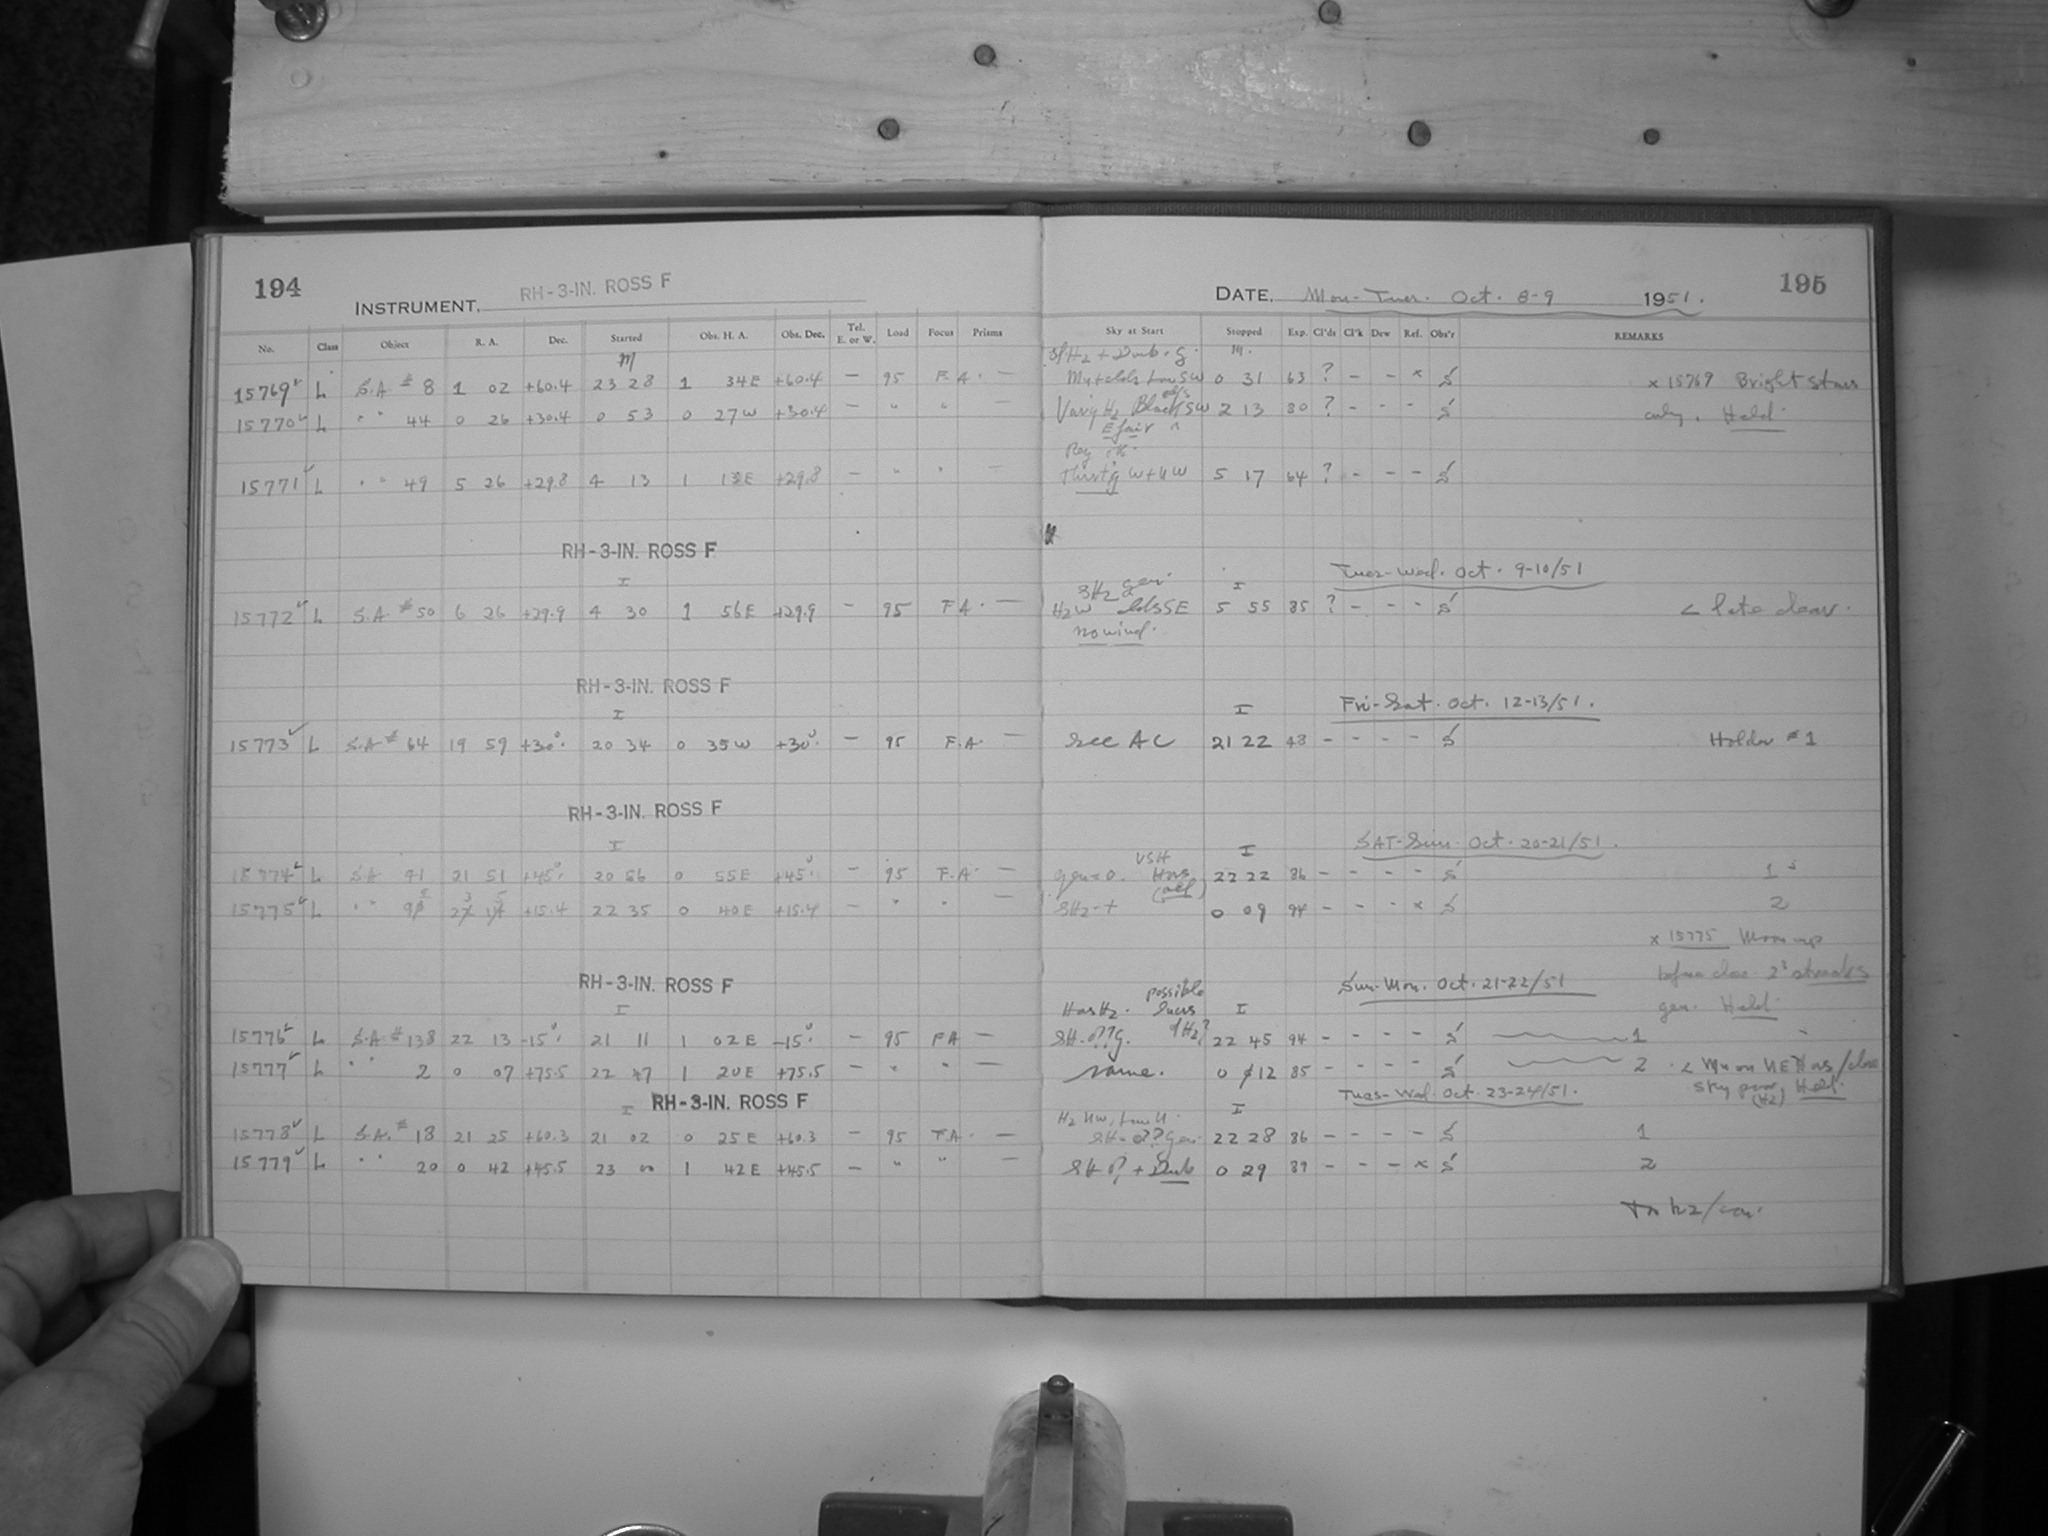 194
INSTRUMENT, RH-3-IN. ROSS F
DATE, Mon-Tues. Oct. 8-9 1951. 195
No. Class Object R. A. Dec. Started Obs. H. A. Obs. Dec. Tel. E. or W. Load Focus Prisms Sky at Start Stopped Exp. Cl'ds Cl'k Dew Ref. Obs'r REMARKS
M M.
15769 L S.A. # 8 1 02 +60.4 23 28 1 34E +60.4 — 95 F.A. — SW 0 31 63 ? - - x S × 15769 Bright stars
15770 L " " 44 0 26 +30.4 0 53 0 27W +30.4 — " " — Var'g H2 Black SW 2 13 80 ? - - - S only. Held.
E fair
15771 L " " 49 5 26 +29.8 4 13 1 13E +29.8 — " " — W + UW 5 17 64 ? - - - S
RH-3-IN. ROSS F
Tues-Wed. Oct. 9-10/51
I 3H2 gen. I
15772 L S.A. # 50 6 26 +29.9 4 30 1 56E +29.9 — 95 FA. — H2W SE 5 55 85 ? - - - S < late clear.
no wind.
RH-3-IN. ROSS F
Fri-Sat. Oct. 12-13/51.
I I
15773 L S.A # 64 19 59 +30° 20 34 0 35W +30° — 95 F.A. — See AC 21 22 48 - - - - S Holder #1
RH-3-IN. ROSS F
SAT-Sun. Oct. 20-21/51.
I VSH I
15774 L SA 41 21 51 +45° 20 56 0 55E +45° — 95 F.A. — 22 22 86 - - - - S 1
15775 L " " 23 15 +15.4 22 35 0 40E +15.4 — " " — SH2-+ 0 09 94 - - - x S 2
× 15775 Moon up
before close streaks
gen. Held.
RH-3-IN. ROSS F
Sun-Mon. Oct. 21-22/51
I Has H2. possible I
15776 L S.A. # 138 22 13 -15° 21 11 1 02E -15° — 95 FA — SH-0??g. of H2? 22 45 94 - - - - S 1
15777 L " " 2 0 07 +75.5 22 47 1 20E +75.5 — " " — same. 0 12 85 - - - - S 2 < Moon NE Has/close
sky poor, Held.
(H2)
RH-3-IN. ROSS F
Tues-Wed. Oct. 23-24/51.
I I
15778 L S.A. # 18 21 25 +60.3 21 02 0 25E +60.3 — 95 FA. — SH-0?? gen. 22 28 86 - - - - S 1
15779 L " " 20 0 42 +45.5 23 00 1 42E +45.5 — " " — 0 29 89 - - - x S 2